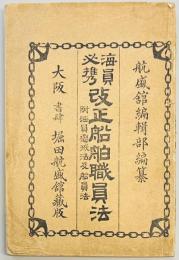 航盛舘編輯部編纂
海員必携
改正船舶職員法
附海員懲戒法及船員法
大阪 書肆 堀田航盛舘藏版